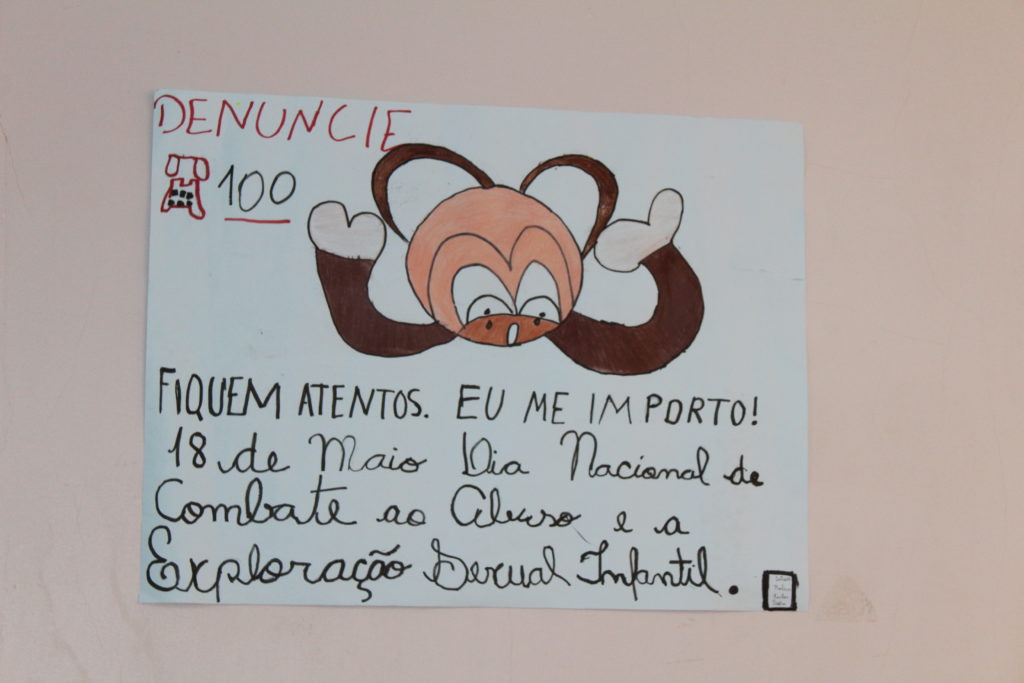 DENUNCIE
100
FIQUEM ATENTOS. EU ME IMPORTO!
18 de Maio Dia Nacional de
Combate ao Abuso e a
Exploração Sexual Infantil.